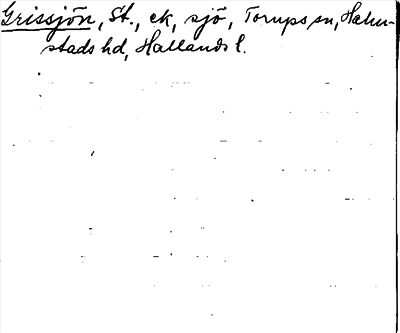 Grissjön, St., ek, sjö, Torups sn, Halm-
stads hd, Hallands l.